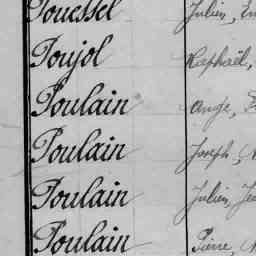 Pouessel Julien,
Poujol Raphaël,
Poulain Ange,
Poulain Joseph,
Poulain Julien, Jea
Poulain Pierre,